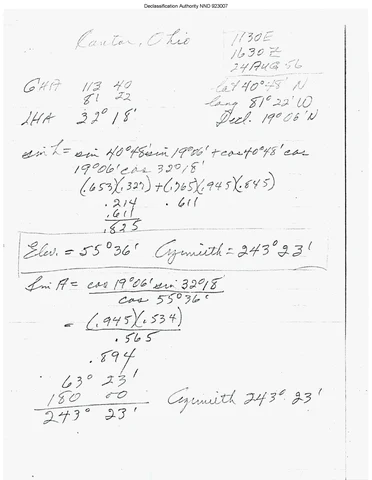 Declassification Authority NND 923007
Canton, Ohio
1130E
1630Z
24 Aug 56
GHA 113 40
81 22
LHA 32° 18'
lat 40° 48' N
long 81° 22' W
Decl. 19° 06' N
sin L = sin 40°48' sin 19°06' + cos 40°48' cos
19°06' cos 32°18'
(.653)(.327) + (.765)(.945)(.845)
.214 .611
.611
.825
Elev. = 55° 36' Azymieth = 243° 23'
Sin A = cos 19°06' sin 32°18
cos 55°36'
= (.945)(.534)
.565
.894
63° 23'
180 00
243° 23'
Azymieth 243° 23'